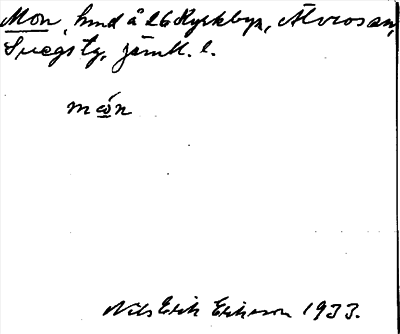 Mon, hmd å 26 Kyrkbyn, Älvros sn,
Svegs tg, Jämtl. l.
mȯ́n
Nils Erik Eriksson 1933.